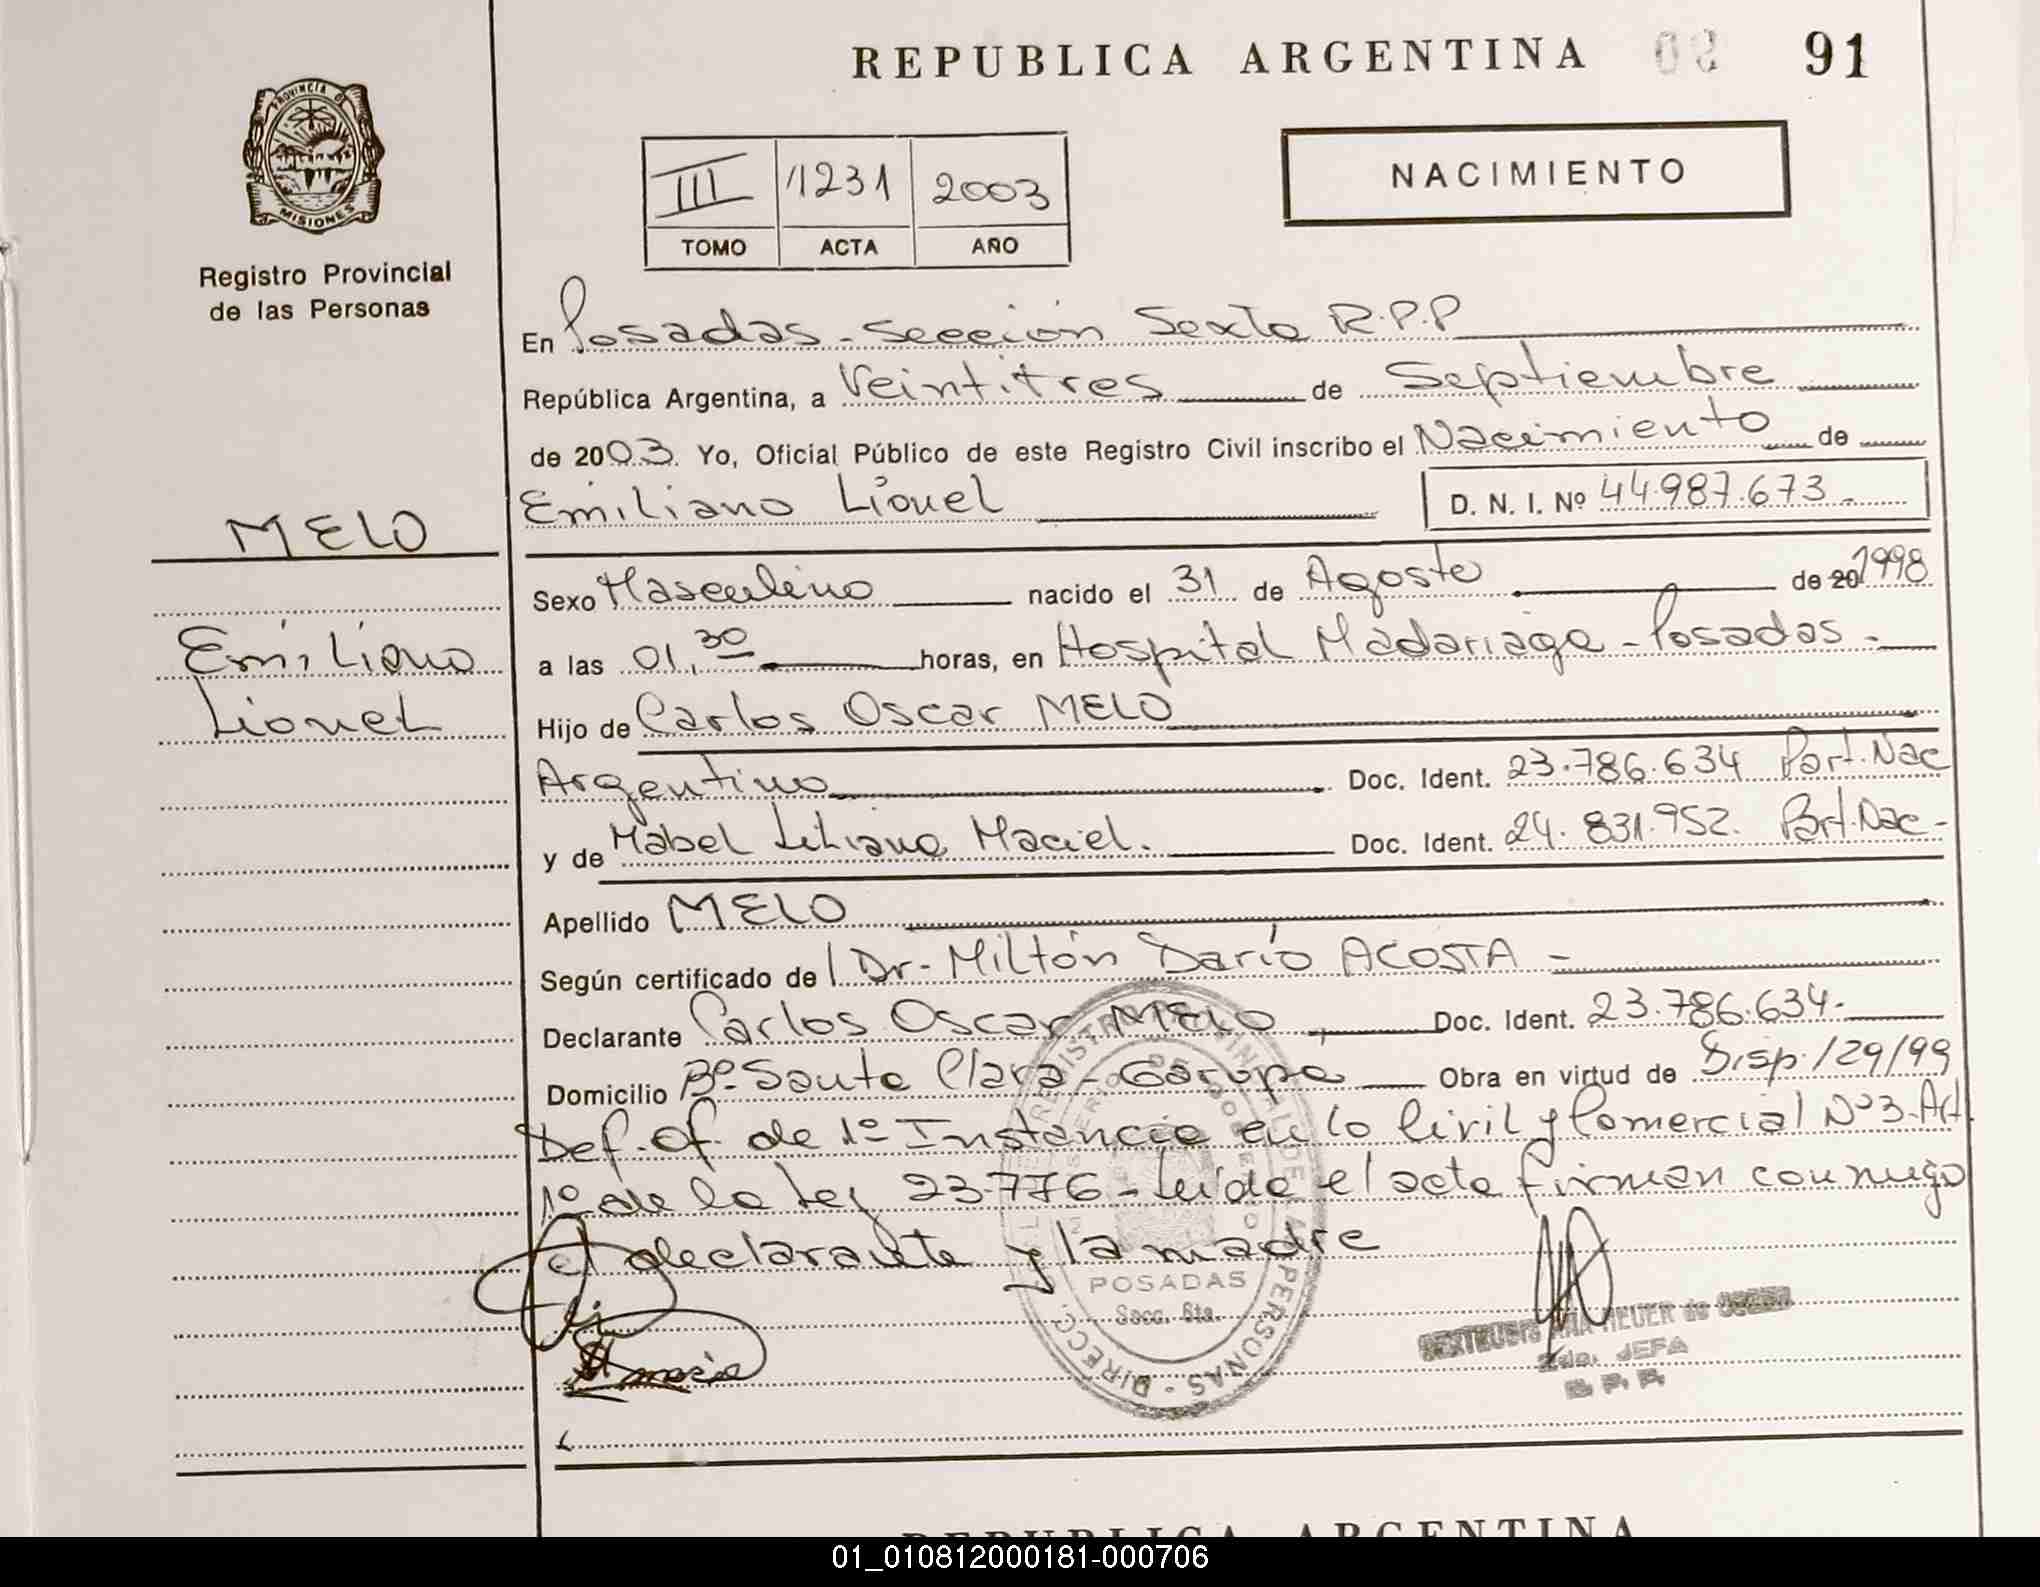 REPUBLICA ARGENTINA 91
PROVINCIA DE
MISIONES
Registro Provincial
de las Personas
NACIMIENTO
III 1231 2003
TOMO ACTA AÑO
En Posadas - Sección Sexta R.P.P
República Argentina, a Veintitres de Septiembre
de 2003. Yo, Oficial Público de este Registro Civil inscribo el Nacimiento de
Emiliano Lionel D. N. I. Nº 44.987.673.-
MELO
Emiliano
Lionel
Sexo Masculino nacido el 31 de Agosto de 20 1998
a las 01,30 horas, en Hospital Madariaga - Posadas.-
Hijo de Carlos Oscar MELO
Argentino Doc. Ident. 23.786.634 Part. Nac
y de Mabel Liliana Maciel. Doc. Ident. 24.831.952. Part. Nac-
Apellido MELO
Según certificado de Dr. Miltón Darío ACOSTA -
Declarante Carlos Oscar MELO, Doc. Ident. 23.786.634.-
Domicilio Bº Santa Clara - Garupá Obra en virtud de Disp. 129/99
Def. Of. de 1º Instancia en lo Civil y Comercial Nº 3. Art.
1º de la Ley 23.776 - Leida el acta firman conmigo
el declarante y la madre
POSADAS
Secc. 6ta.
2da. JEFA
R. P. P.
REPUBLICA ARGENTINA
01_010812000181-000706